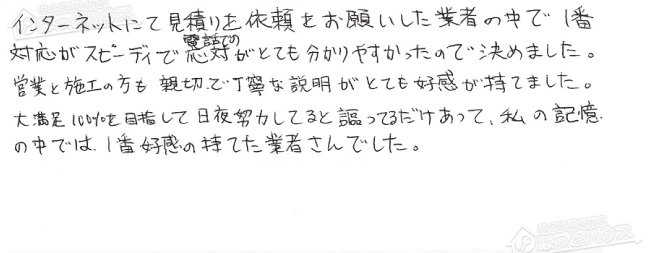 インターネットにて見積りを依頼をお願いした業者の中で1番
対応がスピーディで電話での応対がとても分かりやすかったので決めました。
営業と施工の方も親切で丁寧な説明がとても好感が持てました。
大満足100%を目指して日夜努力してると謳ってるだけあって、私の記憶
の中では、1番好感の持てた業者さんでした。